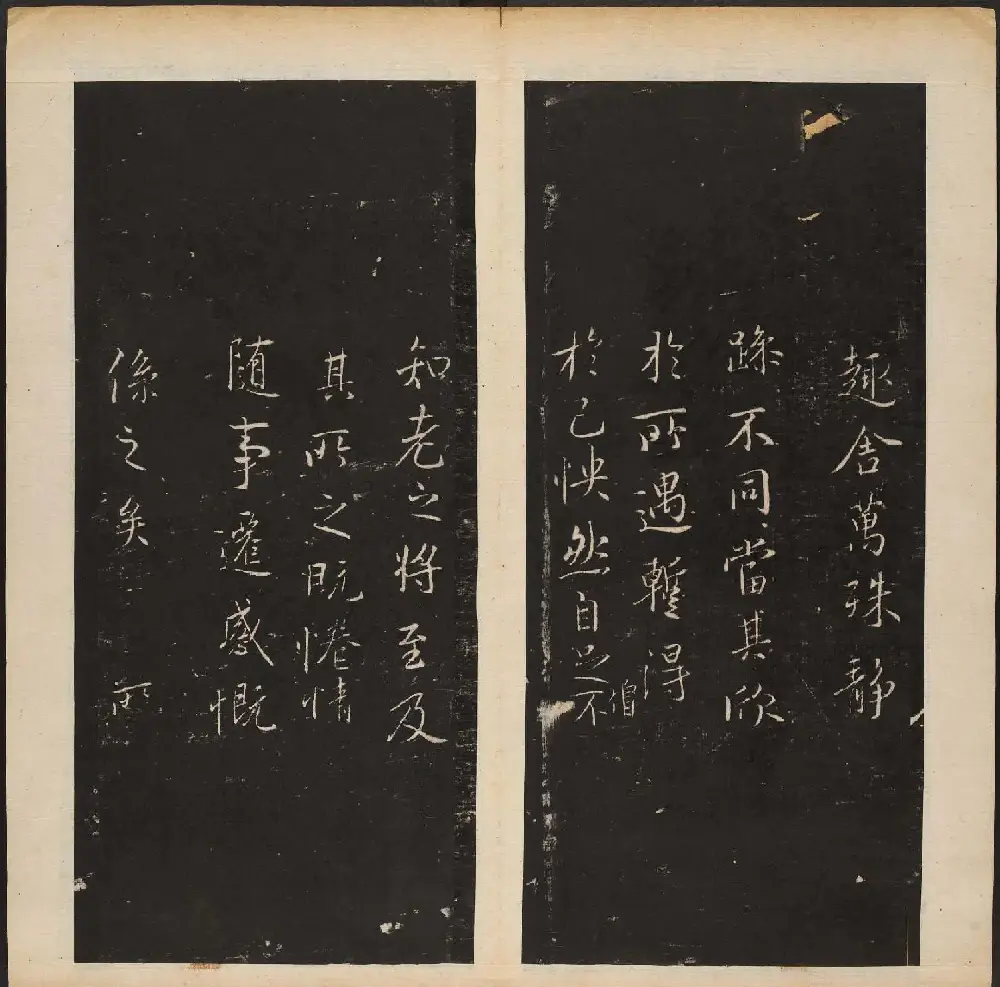 趣舍萬殊静
躁不同當其欣
於所遇蹔得
於己怏然自足不
知老之將至及
其所之既惓情
随事遷感慨
係之矣